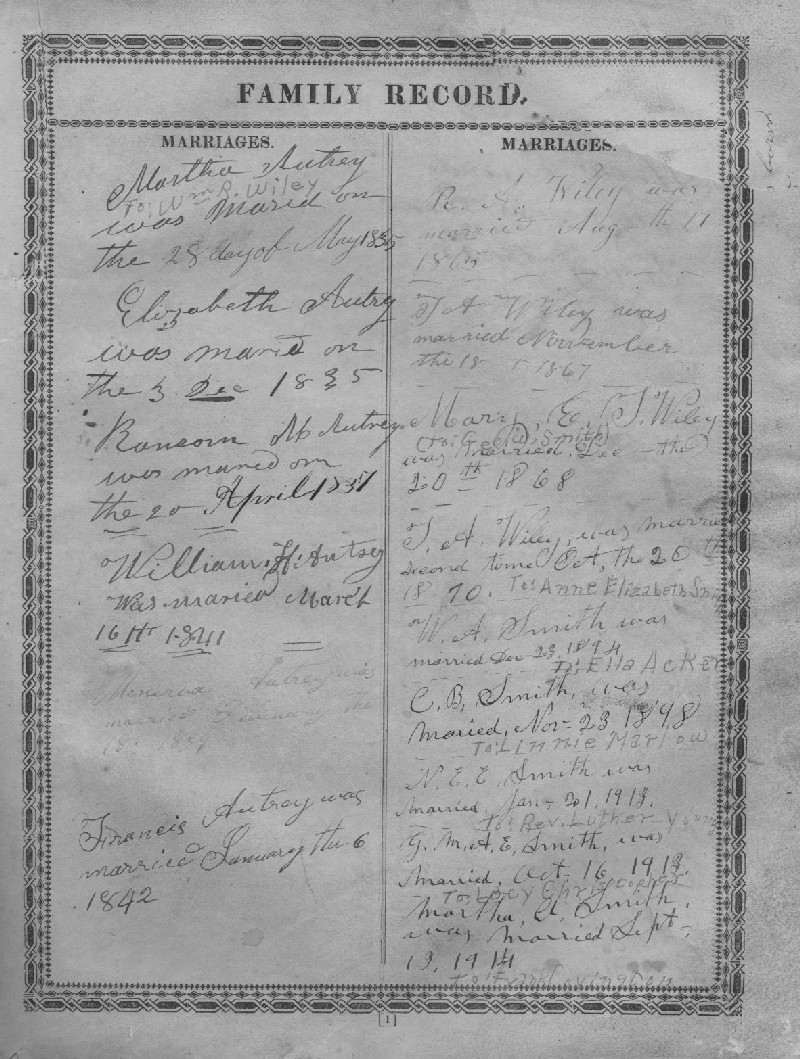 FAMILY RECORD.
MARRIAGES.
Martha Autrey
To: Wm R. Wiley
was maried on
the 28 day of May 1835
Elizabeth Autry
was maried on
the 3 Dec 1835
Ransom M Autrey
was maried on
the 20 April 1837
William H. Autrey
Was maried March
16th 1841
Menerva Autrey was
married the
Francis Autrey was
married January the 6
1842
MARRIAGES.
R. A. Wiley was
married Aug th 17
1865
T A Wiley was
married November
the 18 1867
Mary E. J. Wiley
(To: Geo. W. Smith)
was married Dec the
20th 1868
T. A. Wiley, was married
second tome Oct, the 20th
1870. To: Anne Elizabeth
W. A. Smith was
married Dec 23 1894
To: Ella Acker
C. B. Smith, was
Maried, Nov- 23 1898
To: Linnie Marlow
N. E. E. Smith was
Married, Jan- 201, 1913.
To: Rev. Luther Young
G. M. A. E, Smith, was
Married, Oct- 16, 1913.
To: Christopher
Martha, A, Smith,
was Married Sept-
13, 1914
To: Frank
[1]